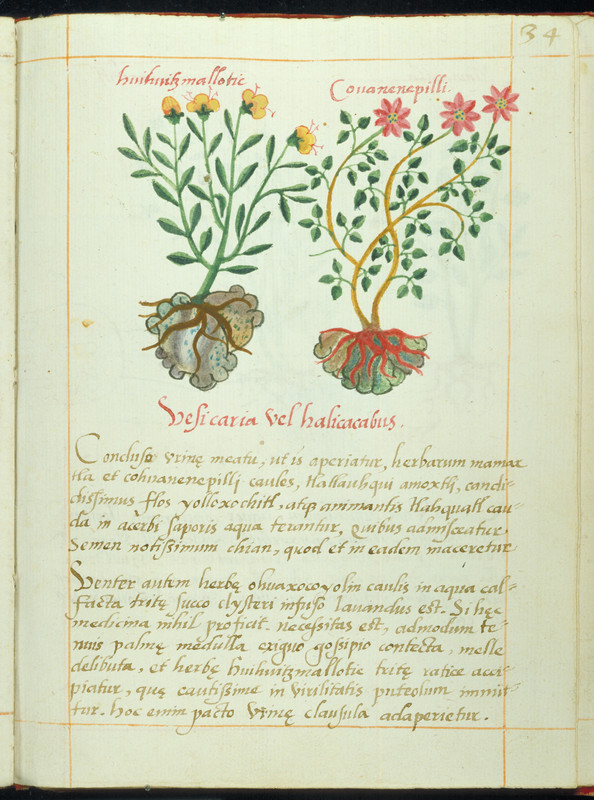 34
huihuitzmallotic
Couanenepilli.
Vesicaria vel halicacabus.
Concluso urinę meatu, ut is aperiatur, herbarum mamax-
tla et cohuanenepilli caules, tlatlauhqui amoxtli, candi-
dissimus flos yolloxochitl, atq; animantis tlahquatl cau-
da in acerbi saporis aqua terantur, quibus admisceatur
Semen notissimum chian, quod et in eadem maceretur
Venter autem herbę ohuaxocoyolin caulis in aqua cal-
facta tritę succo clysteri infuso lavandus est. Si hęc
medicina nihil proficit. necessitas est, admodum te-
nuis palmę medulla exiguo gossipio contecta, melle
delibuta, et herbę huihuitzmallotic tritę radice acci-
piatur, quę cautissime in virilitatis puteolum immit-
tur. hoc enim pacto urinę clausula adaperietur.